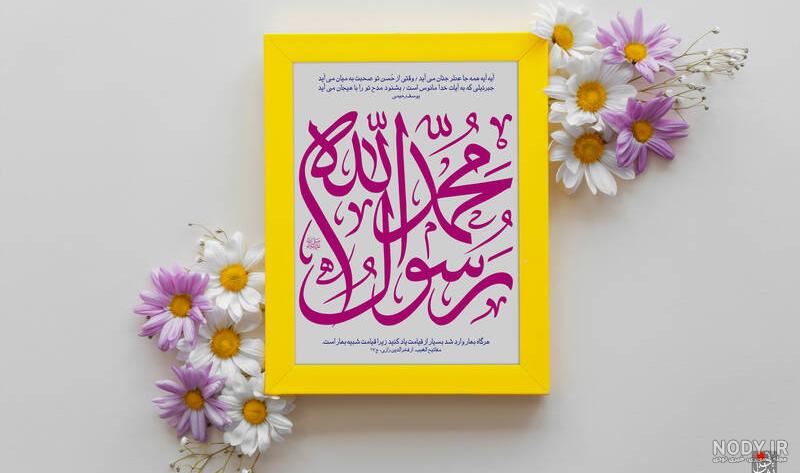 آیه آیه همه جا عطر جنان می آید / وقتی از حُسن تو صحبت به میان می آید
جبرئیلی که به آیات خدا مانوس است / بشنود مدح تو را با هیجان می آید
یوسف رحیمی
محمد رسول الله
هرگاه بهار وارد شد بسیار از قیامت یاد کنید زیرا قیامت شبیه بهار است.
مفاتیح الغیب، از فخرالدین رازی، ج۱۷
NODY.IR